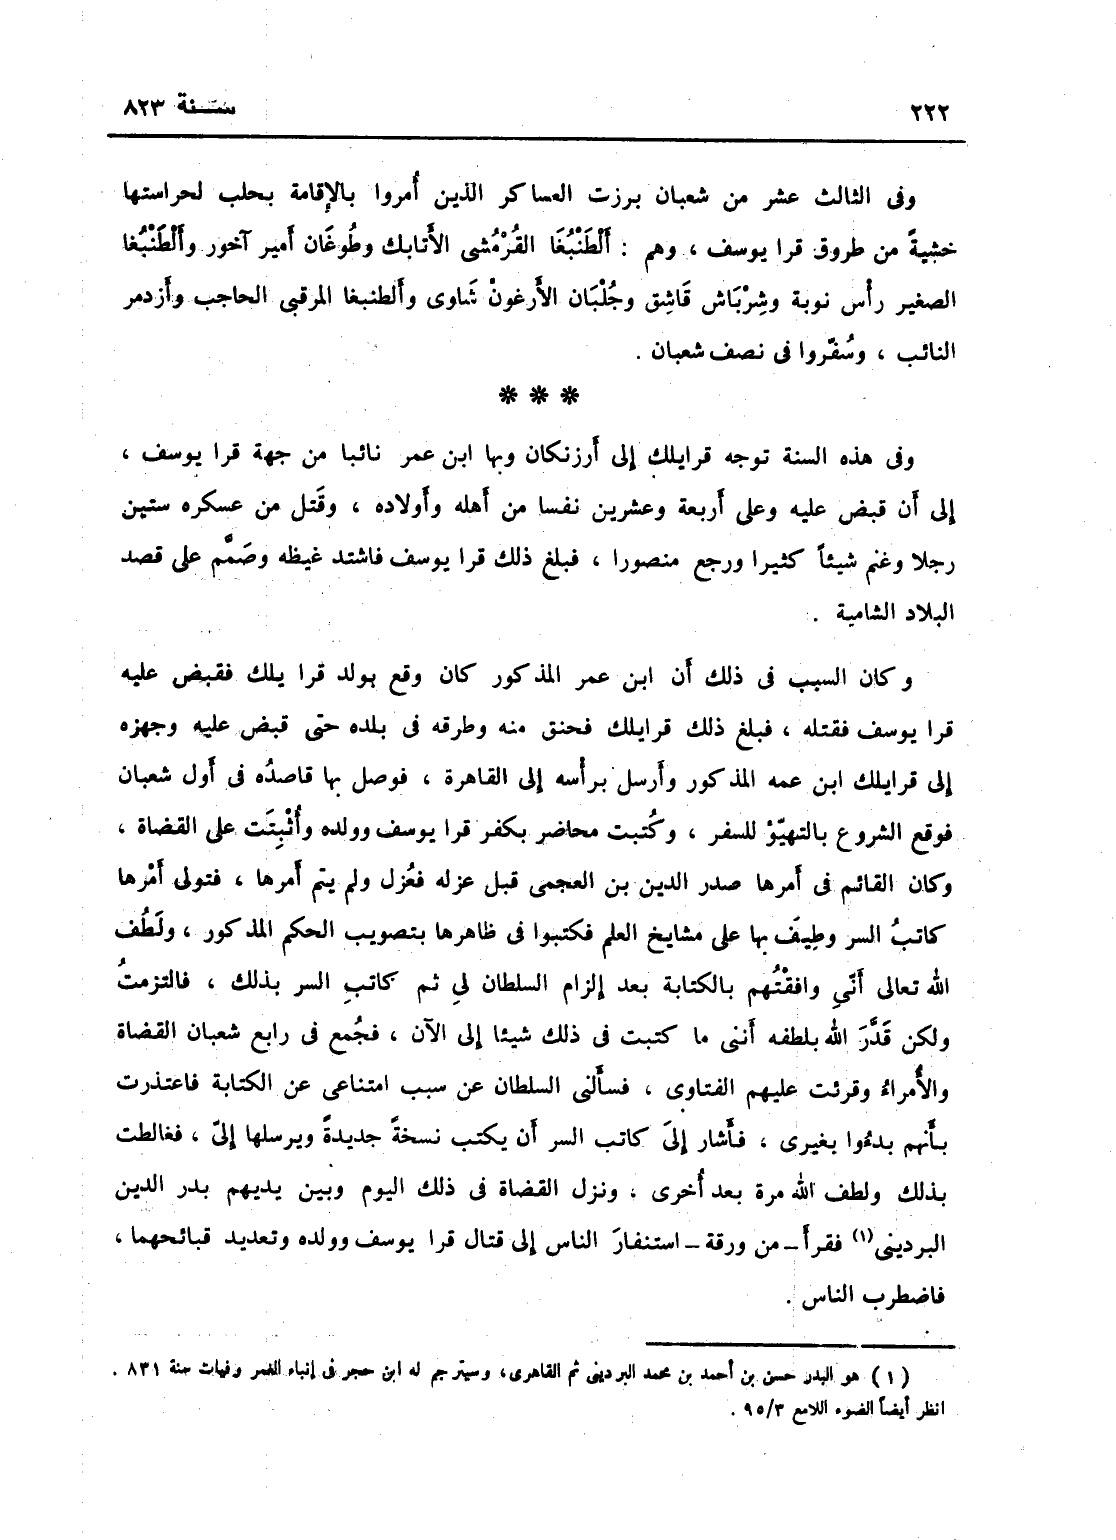 ٢٢٢ سنة ٨٢٣
وفى الثالث عشر من شعبان برزت العساكر الذين أُمروا بالإقامة بحلب لحراستها
خشيةً من طروق قرا يوسف ، وهم : أَلْطَنْبُغَا القُرْمُشى الأَتابك وطُوغَان أمير آخور وأَلْطَنْبُغا
الصغير رأْس نوبة وشِرْبَاش قَاشِق وجُلْبَان الأَرغونْ شَاوى وأَلطنبغا المرقبى الحاجب وأَزدمر
النائب ، وسُفّروا فى نصف شعبان .
* * *
وفى هذه السنة توجه قرايلك إلى أَرزنكان وبها ابن عمر نائبا من جهة قرا يوسف ،
إلى أَن قبض عليه وعلى أَربعة وعشرين نفسا من أَهله وأَولاده ، وقَتل من عسكره ستين
رجلا وغنم شيئاً كثيرا ورجع منصورا ، فبلغ ذلك قرا يوسف فاشتد غيظه وصَمَّم على قصد
البلاد الشامية .
وكان السبب فى ذلك أَن ابن عمر المذكور كان وقع بولد قرا يلك فقبض عليه
قرا يوسف فقتله ، فبلغ ذلك قرايلك فحنق منه وطرقه فى بلده حتى قبض عليه وجهزه
إلى قرايلك ابن عمه المذكور وأَرسل برأْسه إلى القاهرة ، فوصل بها قاصدُه فى أَول شعبان
فوقع الشروع بالتهيّؤ للسفر ، وكُتبت محاضر بكفر قرا يوسف وولده وأُثْبِتَت على القضاة ،
وكان القائم فى أَمرها صدر الدين بن العجمى قبل عزله فعُزل ولم يتم أَمرها ، فتولى أَمْرها
كاتبُ السر وطِيفَ بها على مشايخ العلم فكتبوا فى ظاهرها بتصويب الحكم المذكور ، ولَطُف
الله تعالى أَنّى وافقْتُهم بالكتابة بعد إلزام السلطان لى ثم كاتبِ السر بذلك ، فالتزمتُ
ولكن قَدَّرَ الله بلطفه أَننى ما كتبت فى ذلك شيئا إلى الآن ، فجُمع فى رابع شعبان القضاة
والأُمراءُ وقرئت عليهم الفتاوى ، فسأَلنى السلطان عن سبب امتناعى عن الكتابة فاعتذرت
بأَنهم بدءُوا بغيرى ، فأَشار إلىَ كاتب السر أَن يكتب نسخةً جديدةً ويرسلها إلىّ ، فغالطت
بذلك ولطف الله مرة بعد أُخرى ، ونزل القضاة فى ذلك اليوم وبين يديهم بدر الدين
البردينى(١) فقرأَ ــ من ورقة ــ استنفارَ الناس إلى قتال قرا يوسف وولده وتعديد قبائحهما ،
فاضطرب الناس .
(١) هو البدر حسن بن أحمد بن محمد البردينى ثم القاهرى، وسيترجم له ابن حجر فى إنباء الغمر وفيات سنة ٨٣١ .
انظر أيضاً الضوء اللامع ٩٥/٣ .